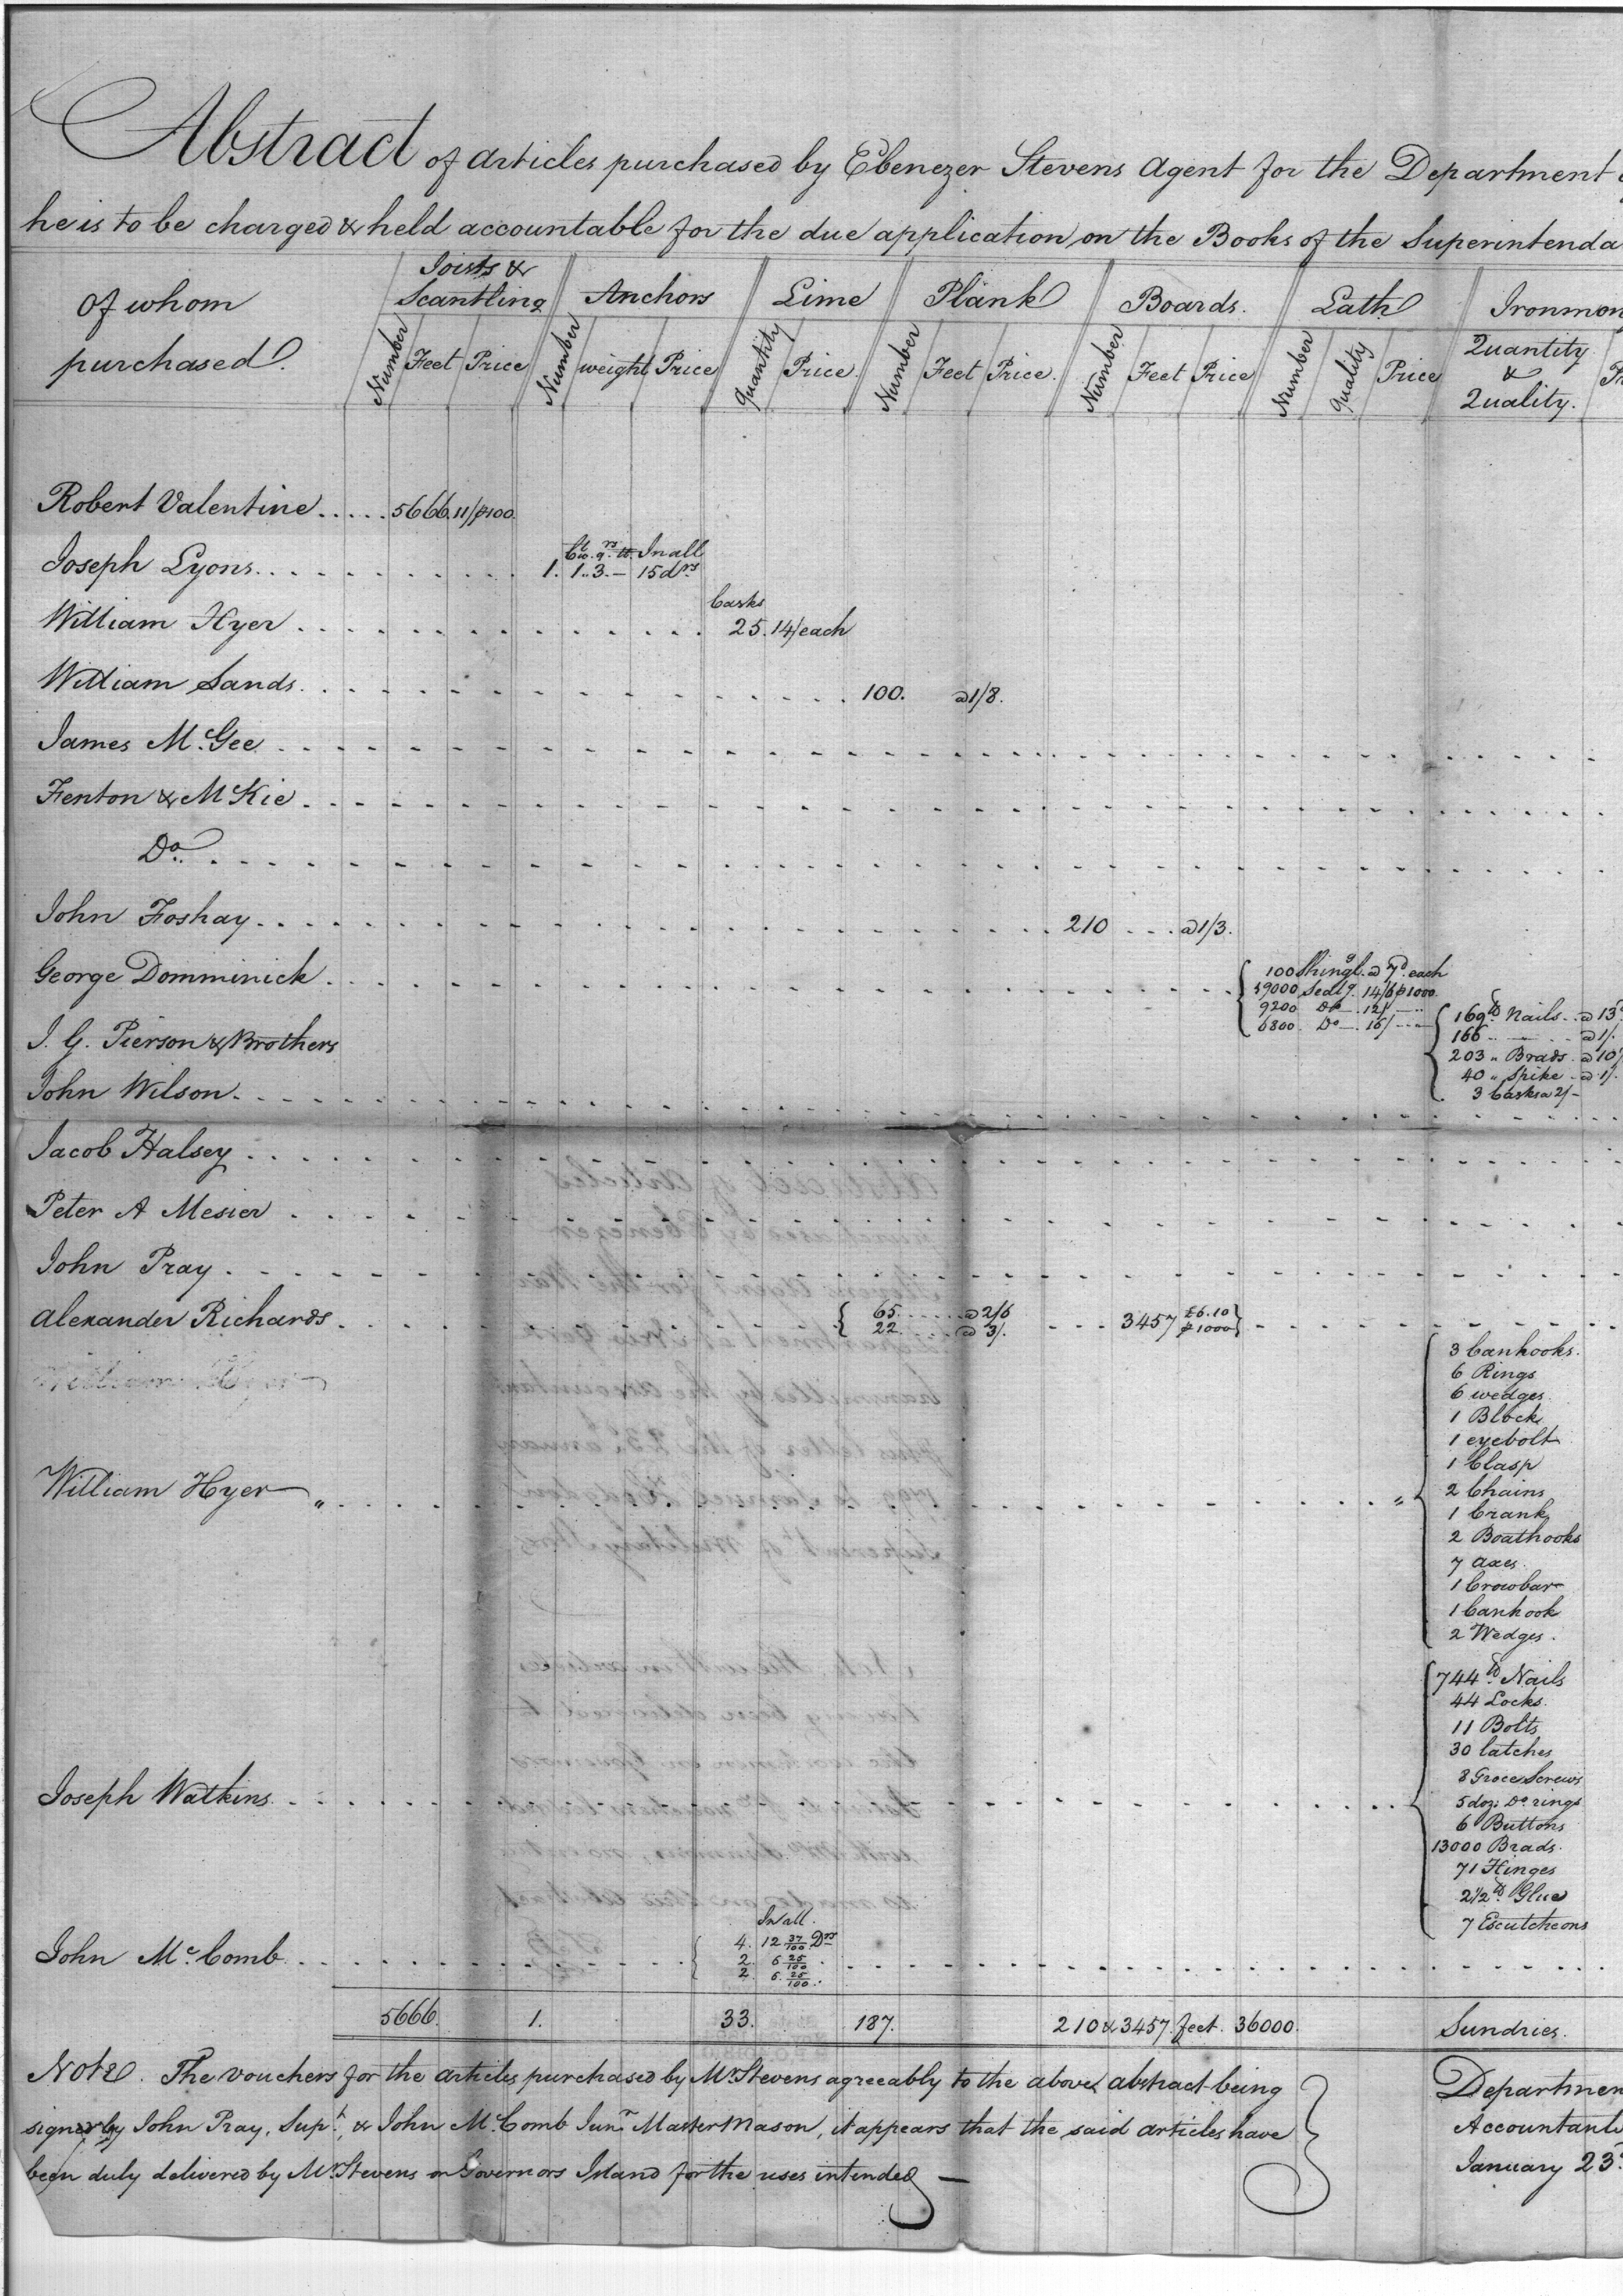 Abstract of articles purchased by Ebenezer Stevens Agent for the Department
he is to be charged & held accountable for the due application on the Books of the Superintenda
Of whom purchased.
Joists & Scantling
Anchors
Lime
Plank
Boards.
Lath
Ironmon
Number Feet Price
Number weight Price
Quantity Price.
Number Feet Price.
Number Feet Price
Number Quality Price
Quantity & Quality.
Robert Valentine ..... 5666. 11/ ⅌ 100.
Cwt. qrs. lb. In all
Joseph Lyons 1. 1.. 3. — 15 drs
Casks
William Hyer 25. 14/ each
William Sands. 100. a 1/8.
James McGee
Fenton & McKie
Do.
John Foshay 210 a 1/3.
George Domminick
100 Shingl.g a 7d. each
9200 Do. 12/
6800. Do. 16/
J. G. Pierson & Brothers
169 lb Nails a 13d
166 a 1/.
203 " Brads a 10
40 " Spike a 1/.
3 Casks a 2/-
John Wilson.
Jacob Halsey
Peter A Mesier
John Pray
Alexander Richards
65 a 2/6 3457 £6.10
22 a 3/. ⅌ 1000
William Hyer
3 Canhooks.
6 Rings
6 wedges
1 Block
1 eyebolt
1 Clasp
2 Chains
1 Crank
2 Boathooks
7 axes.
1 Crowbar
1 Canhook
2 Wedges.
Joseph Watkins
744 lb Nails
44 Locks.
11 Bolts
30 latches
8 Groce Screws
5 doz: Do. rings
6 Buttons
13000 Brads.
71 Hinges
2 1/2 lb Glue
7 Escutcheons
In all.
John McComb
4. 12 37/100 Drs
2. 6 25/100
2. 6. 25/100
5666. 1. 33. 187. 210 & 3457 feet. 36000. Sundries.
Note. The vouchers for the articles purchased by Mr Stevens agreeably to the above abstract being
signed by John Pray, Supt, & John McComb Junr Master Mason, it appears that the said articles have
been duly delivered by Mr Stevens on Governors Island for the uses intended —
Departmen
Accountants
January 23d